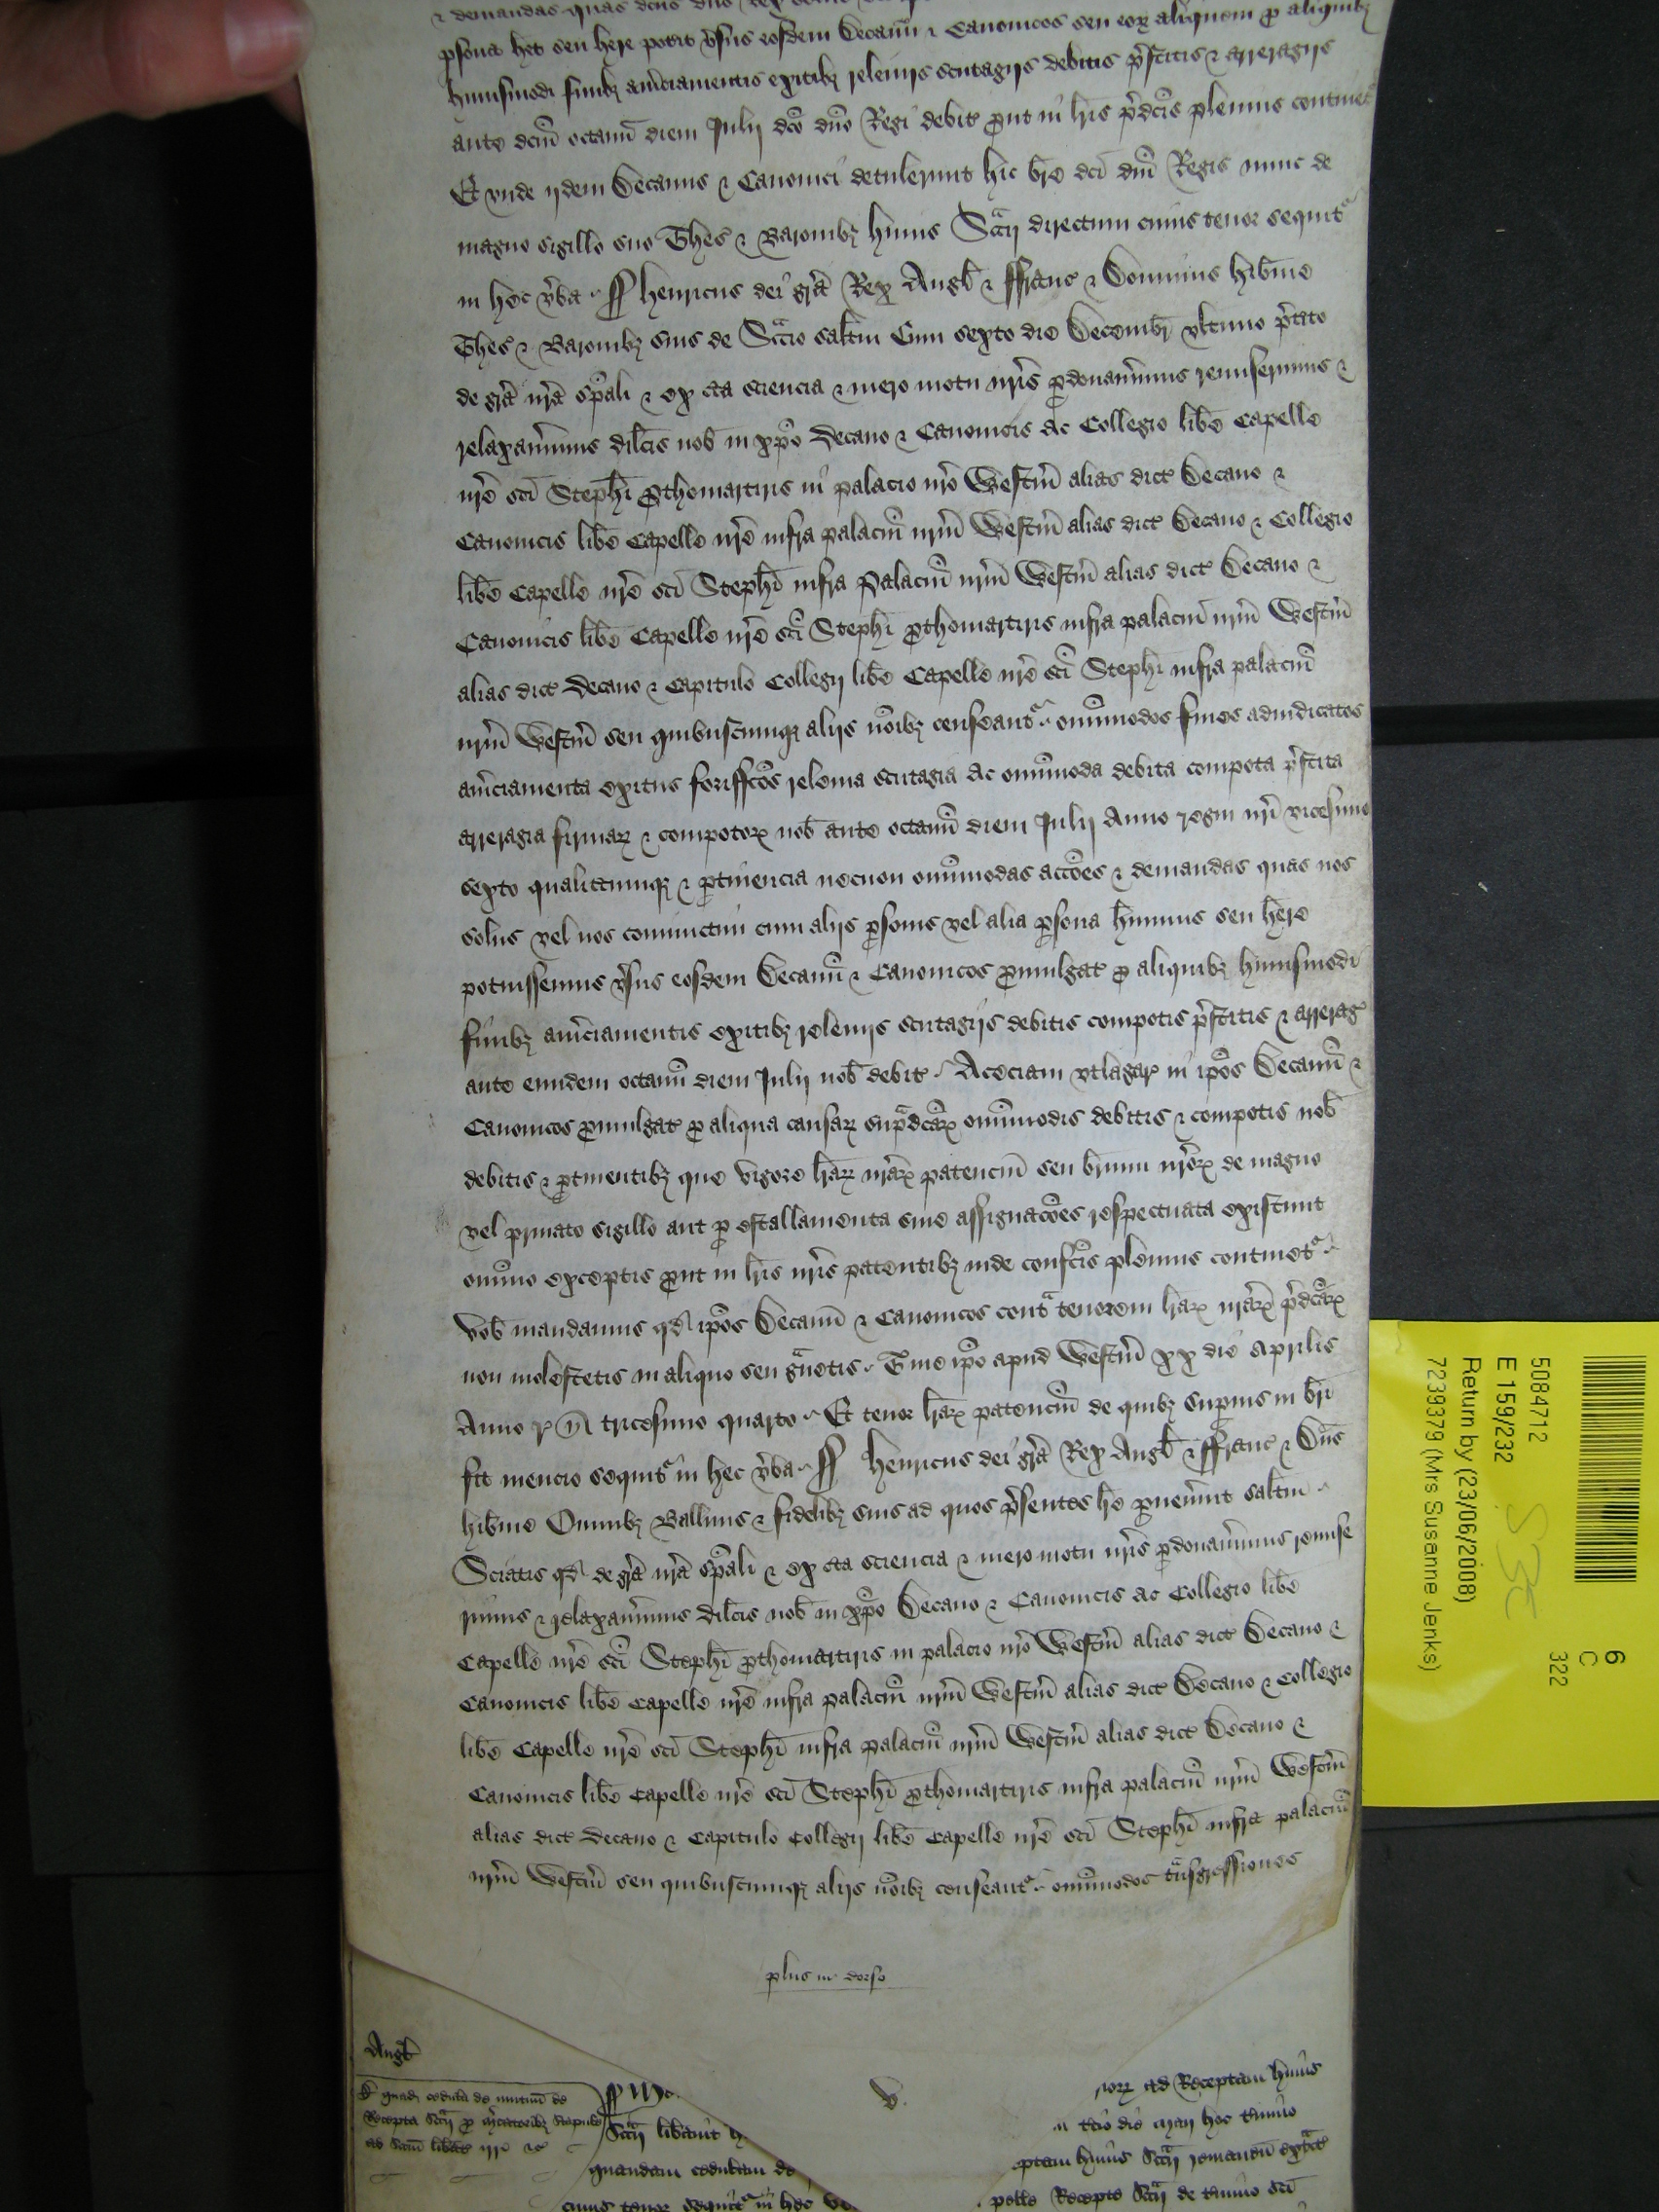 & demandas quas dcus dns Rex
psona het seu here potit vsus eosdem Decanu & Canonicos seu eox aliquem p aliquibz
huiusmodi finibz amciamentis exitibz releuijs scutagijs debitis prestitis & arreragijs
ante dcm octauu diem Julij dco dno Regi debit put in lris pdcis plenius continet
Et vnde ijdem Decanus & Canonici detulerunt hic bre dci dni Regis nunc de
magno sigillo suo Thes & Baronibz huius Sccij directum cuius tenor sequit
in hec vba Henricus dei gra Rex Angl & ffranc & Dominus hibnie
Thes & Baronibz suis de Sccio saltm Cum sexto die Decembr vltimo pterito
de gra nra spali & ex cta sciencia & mero motu nris pdonauimus remiserimus &
relaxauimus dilcis nob in xpo Decano & Canonicis ac Collegio libe Capelle
nre sci Stephi pthomartiris in palacio nro Westm alias dict Decano &
Canonicis libe Capelle nre infra palaciu nrm Westm alias dict Decano & Collegio
libe Capelle nre sci Stephi infra Palaciu nrm Westm alias dict Decano &
Canonicis libe Capelle nre sci Stephi pthomartiris infra palaciu nrm Westm
alias dict Decano & Capitulo Collegij libe Capelle nre sci Stephi infra palaciu
nrm Westm seu quibuscumqz alijs noibz censeant omimodos fines adiudicatos
amciamenta exitus forisfcos releuia scutagia ac omimoda debita compota prestita
arreragia firmax & compotox nob ante octauu diem Julij Anno regni nri vicesimo
sexto qualitcumqz & ptinencia necnon omimodas accoes & demandas quas nos
solus vel nos coniunctim cum alijs psonis vel alia psona huimus seu here
potuissemus vsus eosdem Decanu & Canonicos pmulgat p aliquibz huiusmodi
finibz amciamentis exitibz releuijs scutagijs debitis compotis prestitis & arrerag
ante eundem octauu diem Julij nob debit Aceciam vtlagar in ipos Decanu &
Canonicos pmulgat p aliqua causax supdcax omimodis debitis & compotis nob
debitis & ptinentibz que vigore lrax nrax patenciu seu breuiu nrox de magno
vel priuato sigillo aut p estallamenta siue assignacoes respectuata existunt
omino exceptis put in lris nris patentibz inde confcis plenius continet
vob mandamus qd ipos Decanu & Canonicos conta tenorem lrax nrax pdcax
non molestetis in aliquo seu guetis T me ipo apud Westm xx die Aprilis
Anno r n tricesimo quarto Et tenor lrax patenciu de quibz supius in bri
fit mencio sequit in hec vba Henricus dei gra Rex Angl & ffranc & Dns
hibnie Omnibz Balliuis & fidelibz suis ad quos psentes lre puenint saltm
Sciatis qd de gra nra spali & ex cta sciencia & mero motu nris pdonauimus remise
rimus & relaxauimus dilcis nob in xpo Decano & Canonicis ac Collegio libe
Capelle nre sci Stephi pthomartiris in palacio nro Westm alias dict Decano &
Canonicis libe Capelle nre infra palaciu nrm Westm alias dict Decano & Collegio
libe Capelle nre sci Stephi infra palaciu nrm Westm alias dict Decano &
Canonicis libe Capelle nre sci Stephi pthomartiris infra palaciu nrm Westm
alias dict Decano & Capitulo Collegij libe Capelle nre sci Stephi infra palaciu
nrm Westm seu quibuscumqz alijs noibz censeant omimodos tnsgressiones
plus in dorso
Angl
cedula de
Recepta Sccij p mcatoribz Stapule
ad Sccm libat
Sccij libauit
quandam cedulam de
cuius tenor sequit in hec
v.
ad Receptam huius
die Maij hoc timio
huius Sccij
Recepte Sccij de timio sci
5084712
E 159/232
Return by (23/06/2008)
7239379 (Mrs Susanne Jenks)
6
C
322